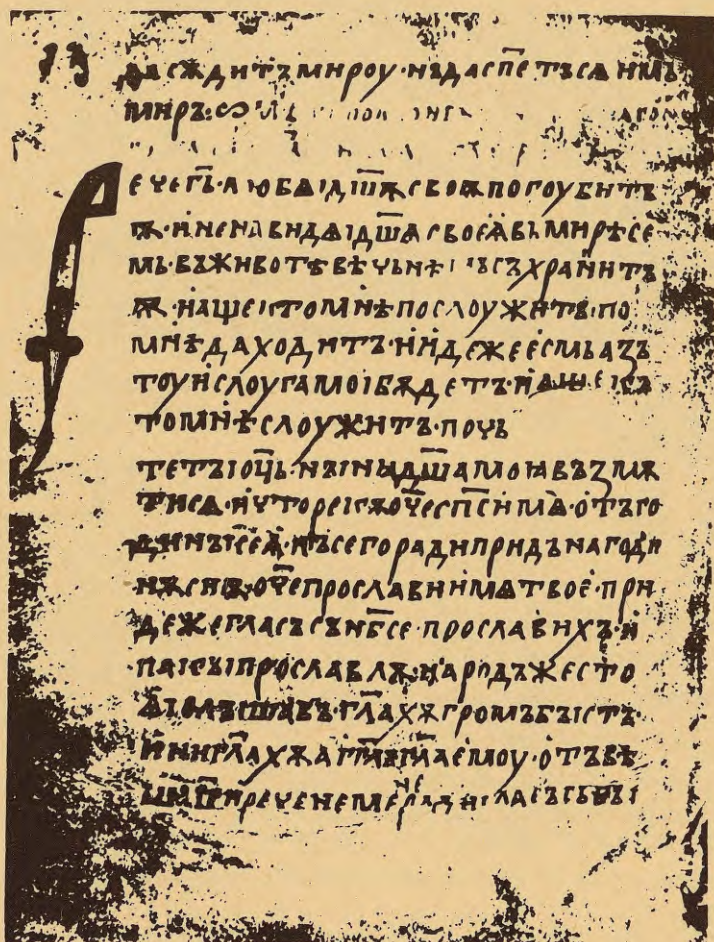 да сѫдитъ мироу · нъ да сп҃етъ сѧ имь
миръ
ече г҃ь · любѧı д҃шѫ своѭ погоубитъ
ѭ · и ненавидѧı д҃шѧ своеѩ вь мирѣ се
мь · въ животѣ вѣчьнѣ съхранитъ
ѭ · аще кто мнѣ послоужитъ · по
мнѣ да ходитъ · и идеже есмь азъ
тоу и слоуга моı бѫдетъ · и аще къ
то мнѣ слоужитъ · почь
тетъı оц҃ь · нъıнꙗ д҃ша моꙗ възмѫ
ти сѧ · и что рекѫ о҃че сп҃си мѧ · отъ го
динъı сеѩ · нъ сего ради придъ на годи
нѫ сиѭ · о҃че прослави имѧ твое · при
де же гласъ съ нб҃се · прославихъ · и
пакъı прославлѭ · народъ же сто
ѩı слъıшавъ · гл҃ахѫ громъ бъıстъ ·
ини гл҃ахѫ а҃гл҃ъ гл҃а емоу · отъвѣ
и рече не мене ради гласъ сь бъı